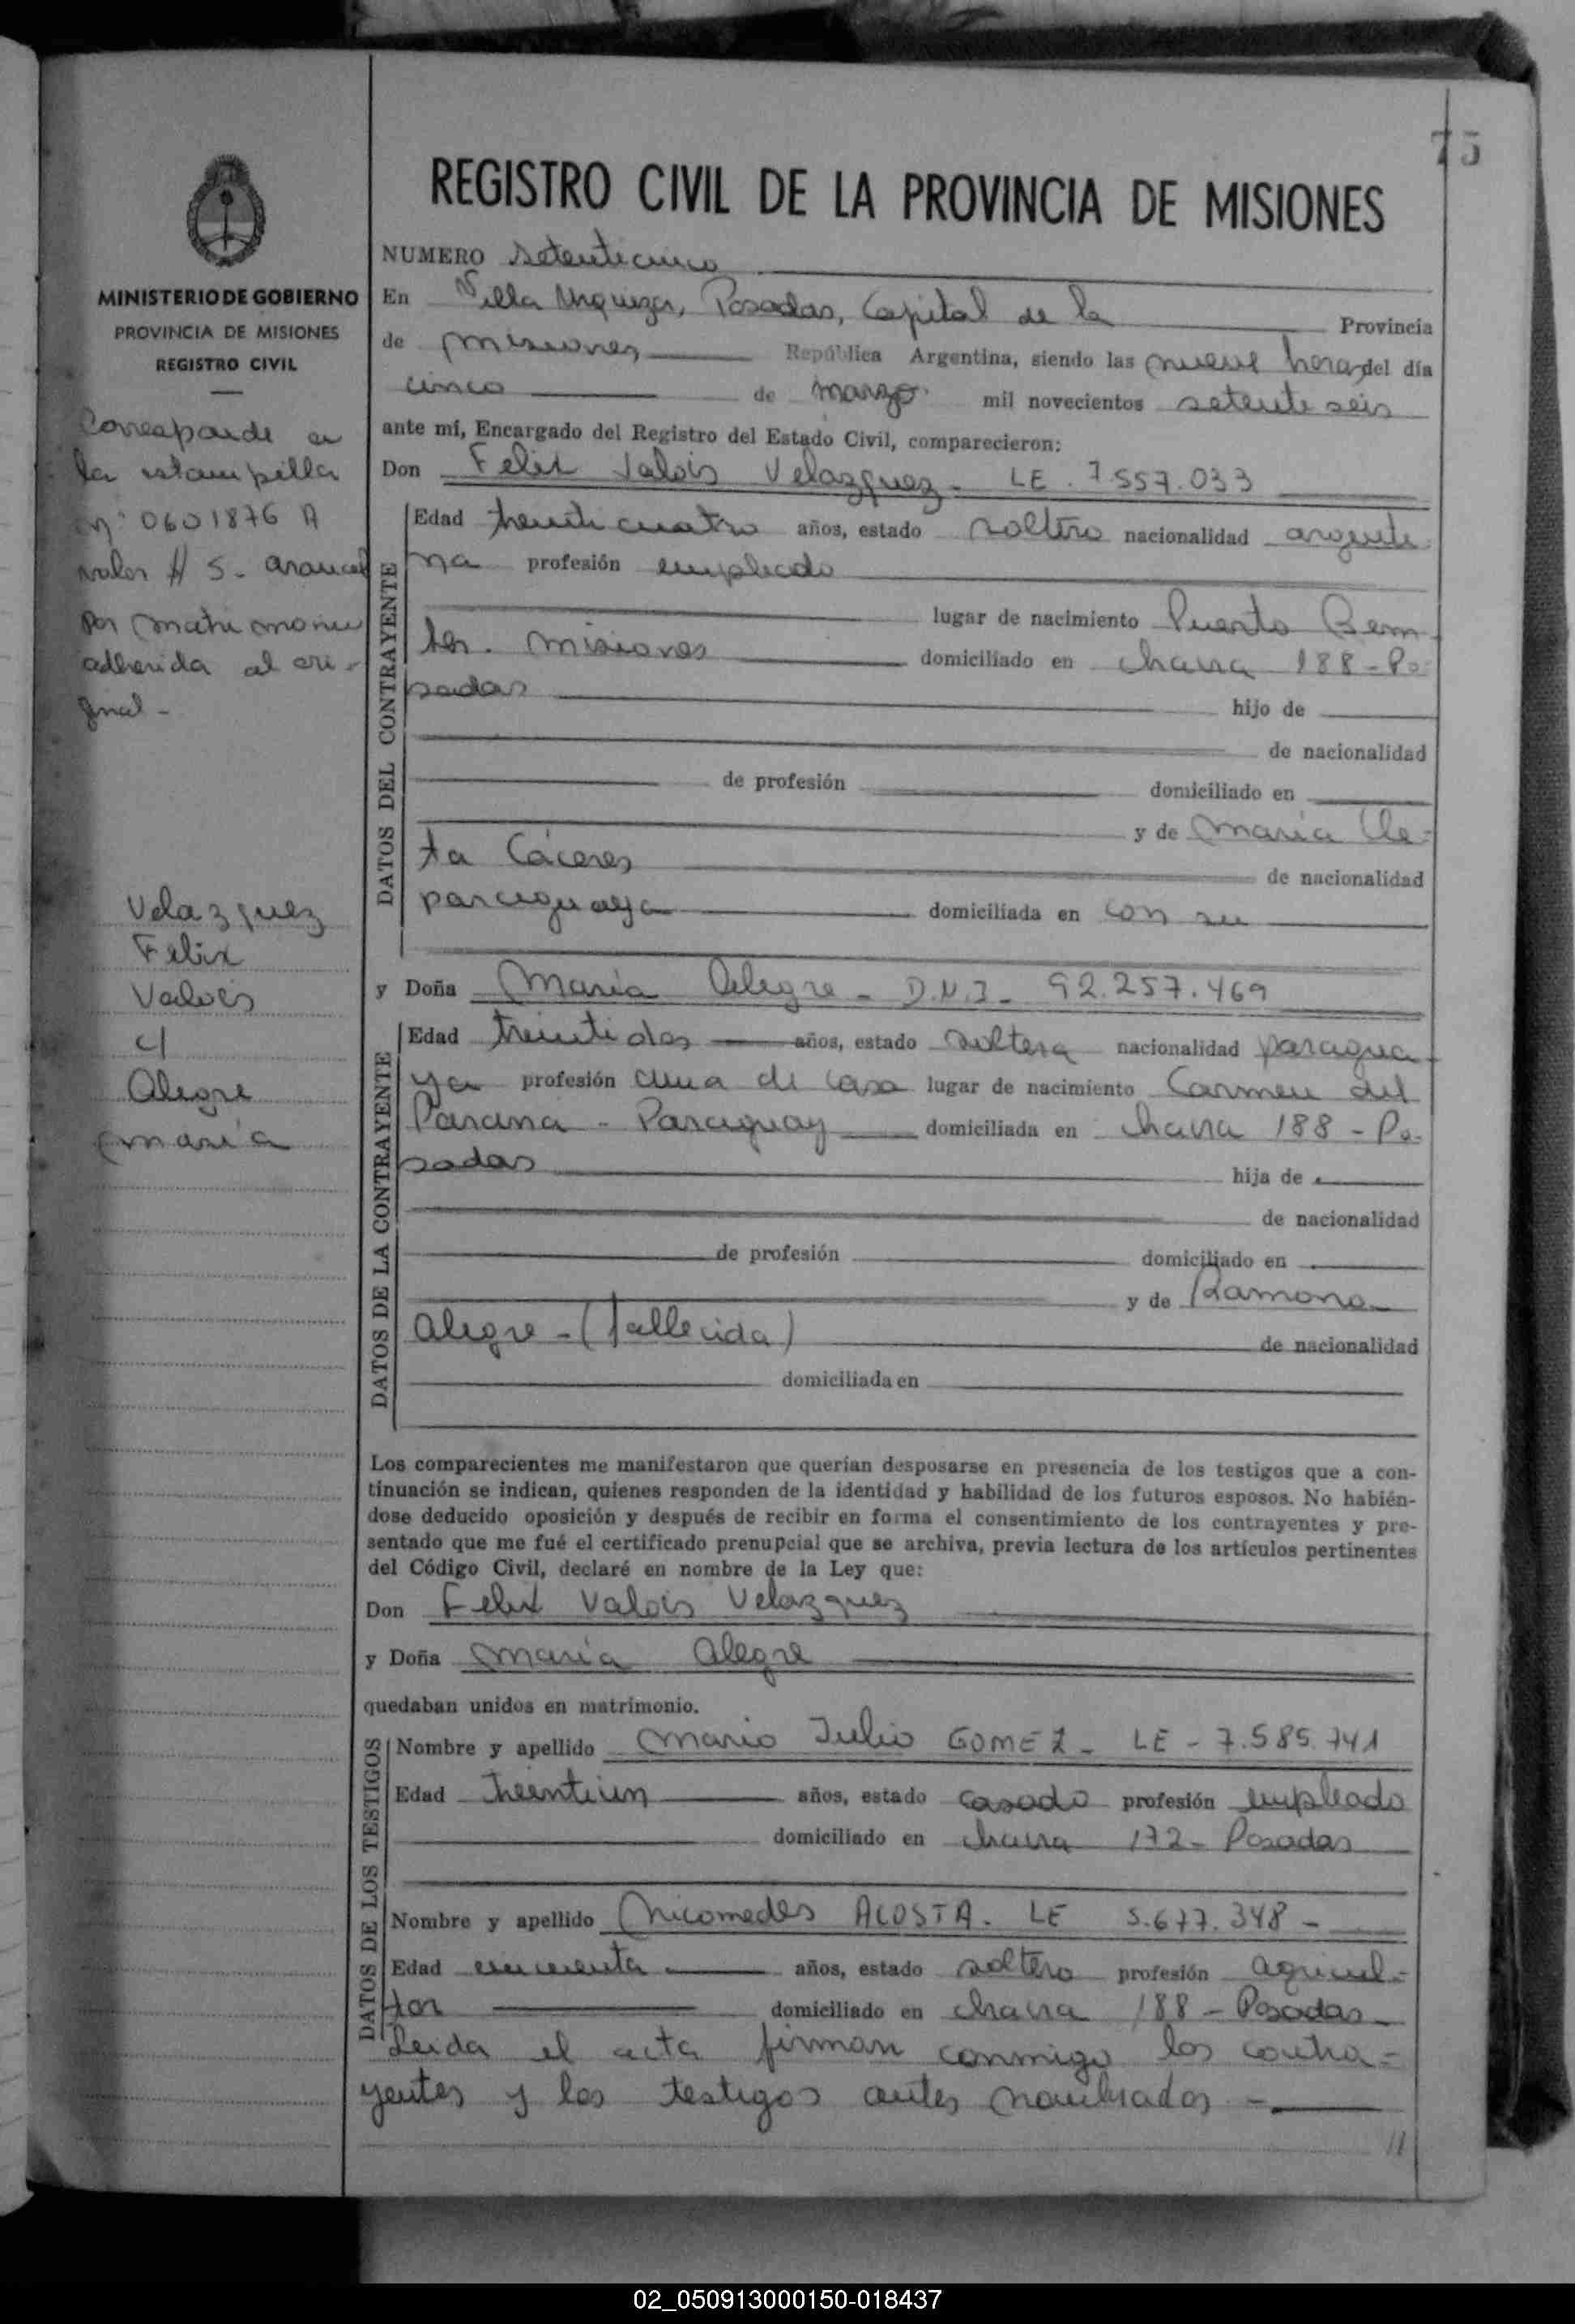 75
REGISTRO CIVIL DE LA PROVINCIA DE MISIONES
MINISTERIO DE GOBIERNO
PROVINCIA DE MISIONES
REGISTRO CIVIL
Corresponde a
la estampilla
nº 0601876 A
valor $ 5.- arancel
por matrimonio
adherida al ori-
ginal -
Velazquez
Felix
Valois
c/
Alegre
maria
NUMERO setenticinco
En Villa Urquiza, Posadas, Capital de la Provincia
de misiones República Argentina, siendo las nueve horas del día
cinco de marzo mil novecientos setenta seis
ante mí, Encargado del Registro del Estado Civil, comparecieron:
Don Felix Valois Velazquez - LE. 7.557.033
DATOS DEL CONTRAYENTE
Edad treinticuatro años, estado soltero nacionalidad argenti
na profesión empleado
lugar de nacimiento Puerto Bem
ber. misiones domiciliado en chacra 188 - Po-
sadas hijo de
de nacionalidad
de profesión domiciliado en
y de maría Cle-
ta Cáceres de nacionalidad
paraguaya domiciliada en con su
y Doña María Alegre - D.N.I - 92.257.469
DATOS DE LA CONTRAYENTE
Edad treintidos años, estado soltera nacionalidad paragua
ya profesión ama de casa lugar de nacimiento Carmen del
Parana - Paraguay domiciliada en chacra 188 - Po-
sadas hija de
de nacionalidad
de profesión domiciliado en
y de Ramona
Alegre - (fallecida) de nacionalidad
domiciliada en
Los comparecientes me manifestaron que querían desposarse en presencia de los testigos que a con-
tinuación se indican, quienes responden de la identidad y habilidad de los futuros esposos. No habién-
dose deducido oposición y después de recibir en forma el consentimiento de los contrayentes y pre-
sentado que me fué el certificado prenupcial que se archiva, previa lectura de los artículos pertinentes
del Código Civil, declaré en nombre de la Ley que:
Don Felix Valois Velazquez
y Doña maría Alegre
quedaban unidos en matrimonio.
DATOS DE LOS TESTIGOS
Nombre y apellido Mario Julio GOMEZ - LE - 7.585.741
Edad treintiun años, estado casado profesión empleado
domiciliado en chacra 172 - Posadas
Nombre y apellido Nicomedes ACOSTA. LE 5.677.348 -
Edad cincuenta años, estado soltero profesión agricul-
tor domiciliado en chacra 188 - Posadas
Leida el acta firman conmigo los contra-
yentes y los testigos antes nombrados -
//
02_050913000150-018437